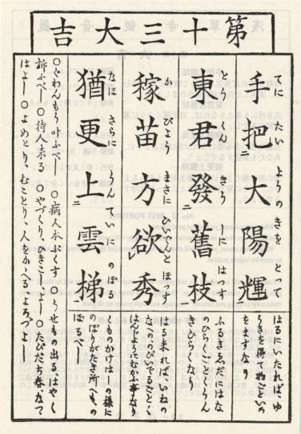 第十三大吉
手把大陽輝
てに たい ようの きを とつて
東君發舊枝
とうくん きう しに はつす
稼苗方欲秀
かびよう まさに ひいでんと ほつす
猶更上雲梯
なを さらに うんていに のぼる
はるにいたれば、ゆ
うきを得て物ごとい
きをますなり
ふるきゑだにはな
のひらくごとくうん
きひらくなり
はる来れば、いねの
なへの、のびいでるごとく
はんじようにむかふ事なり
くものかけはしの様に
のぼりがたき所へもの
ぼるべし
○ぐわんもう叶ふべし ○病人本ぶくす ○うせもの出る、はやく
訴ふべし ○待人来る ○やづくり、ひきこし、よし ○たびだち春、なつ
はよし ○よめとり、むことり、人をかゝへる、よろづよし